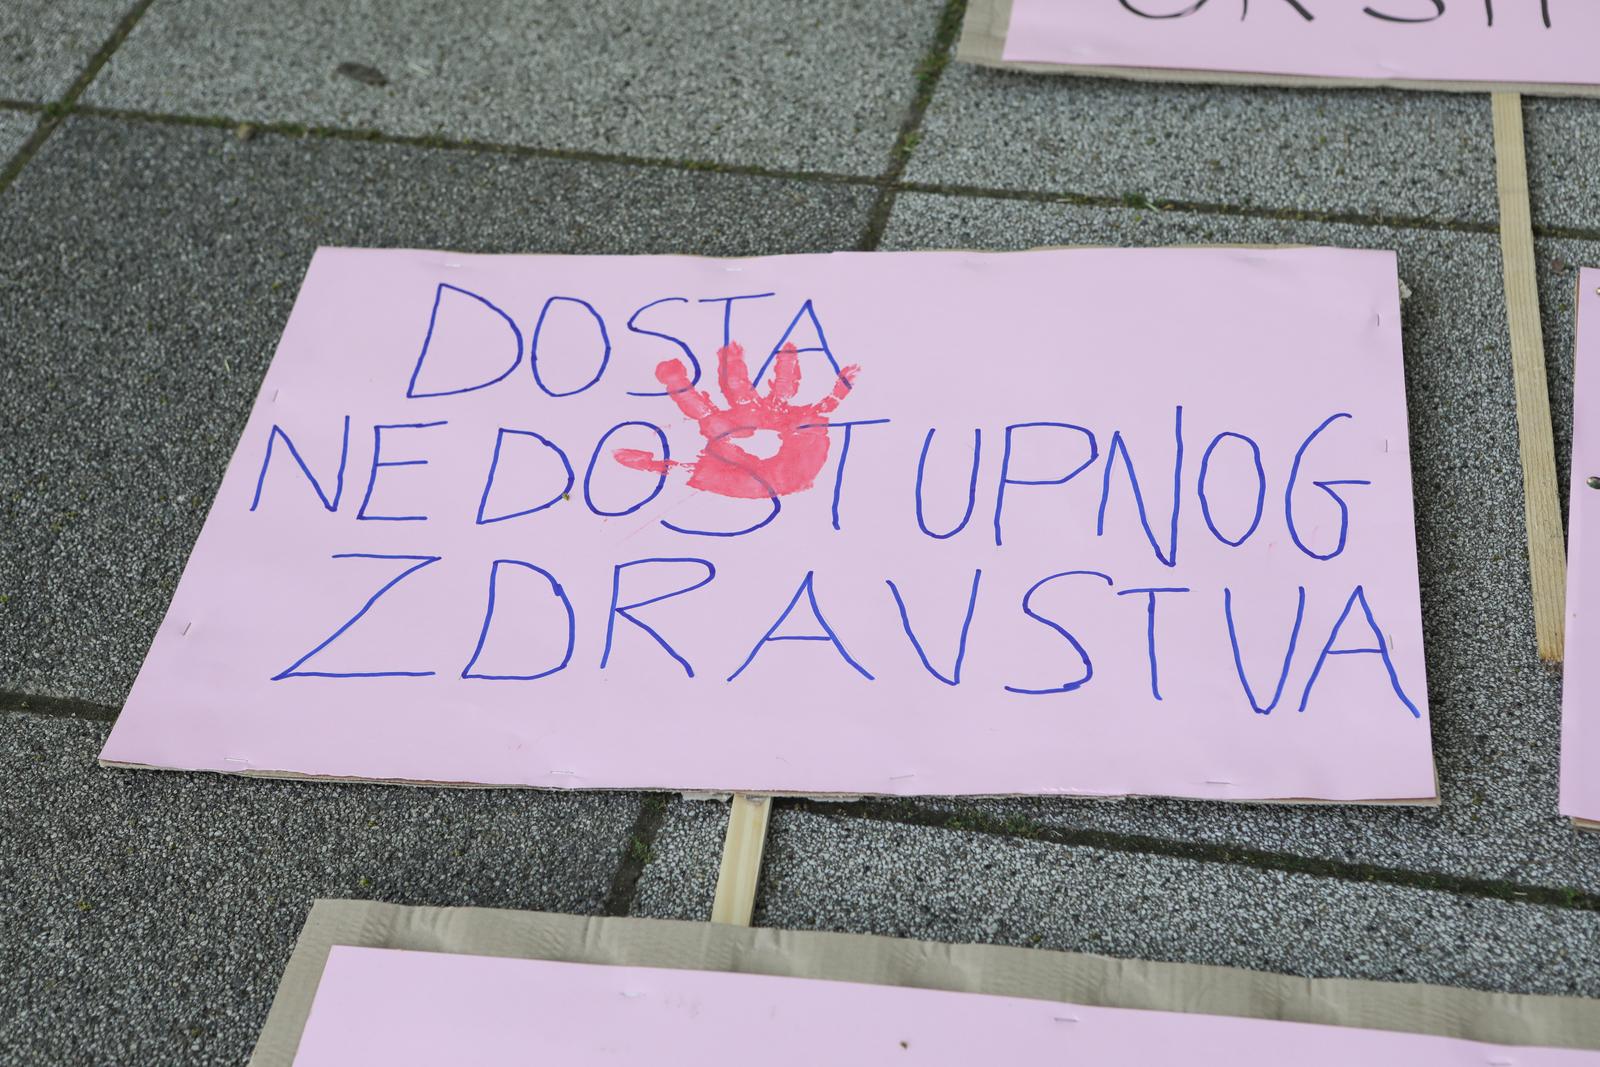 DOSTA
NEDOSTUPNOG
ZDRAVSTVA